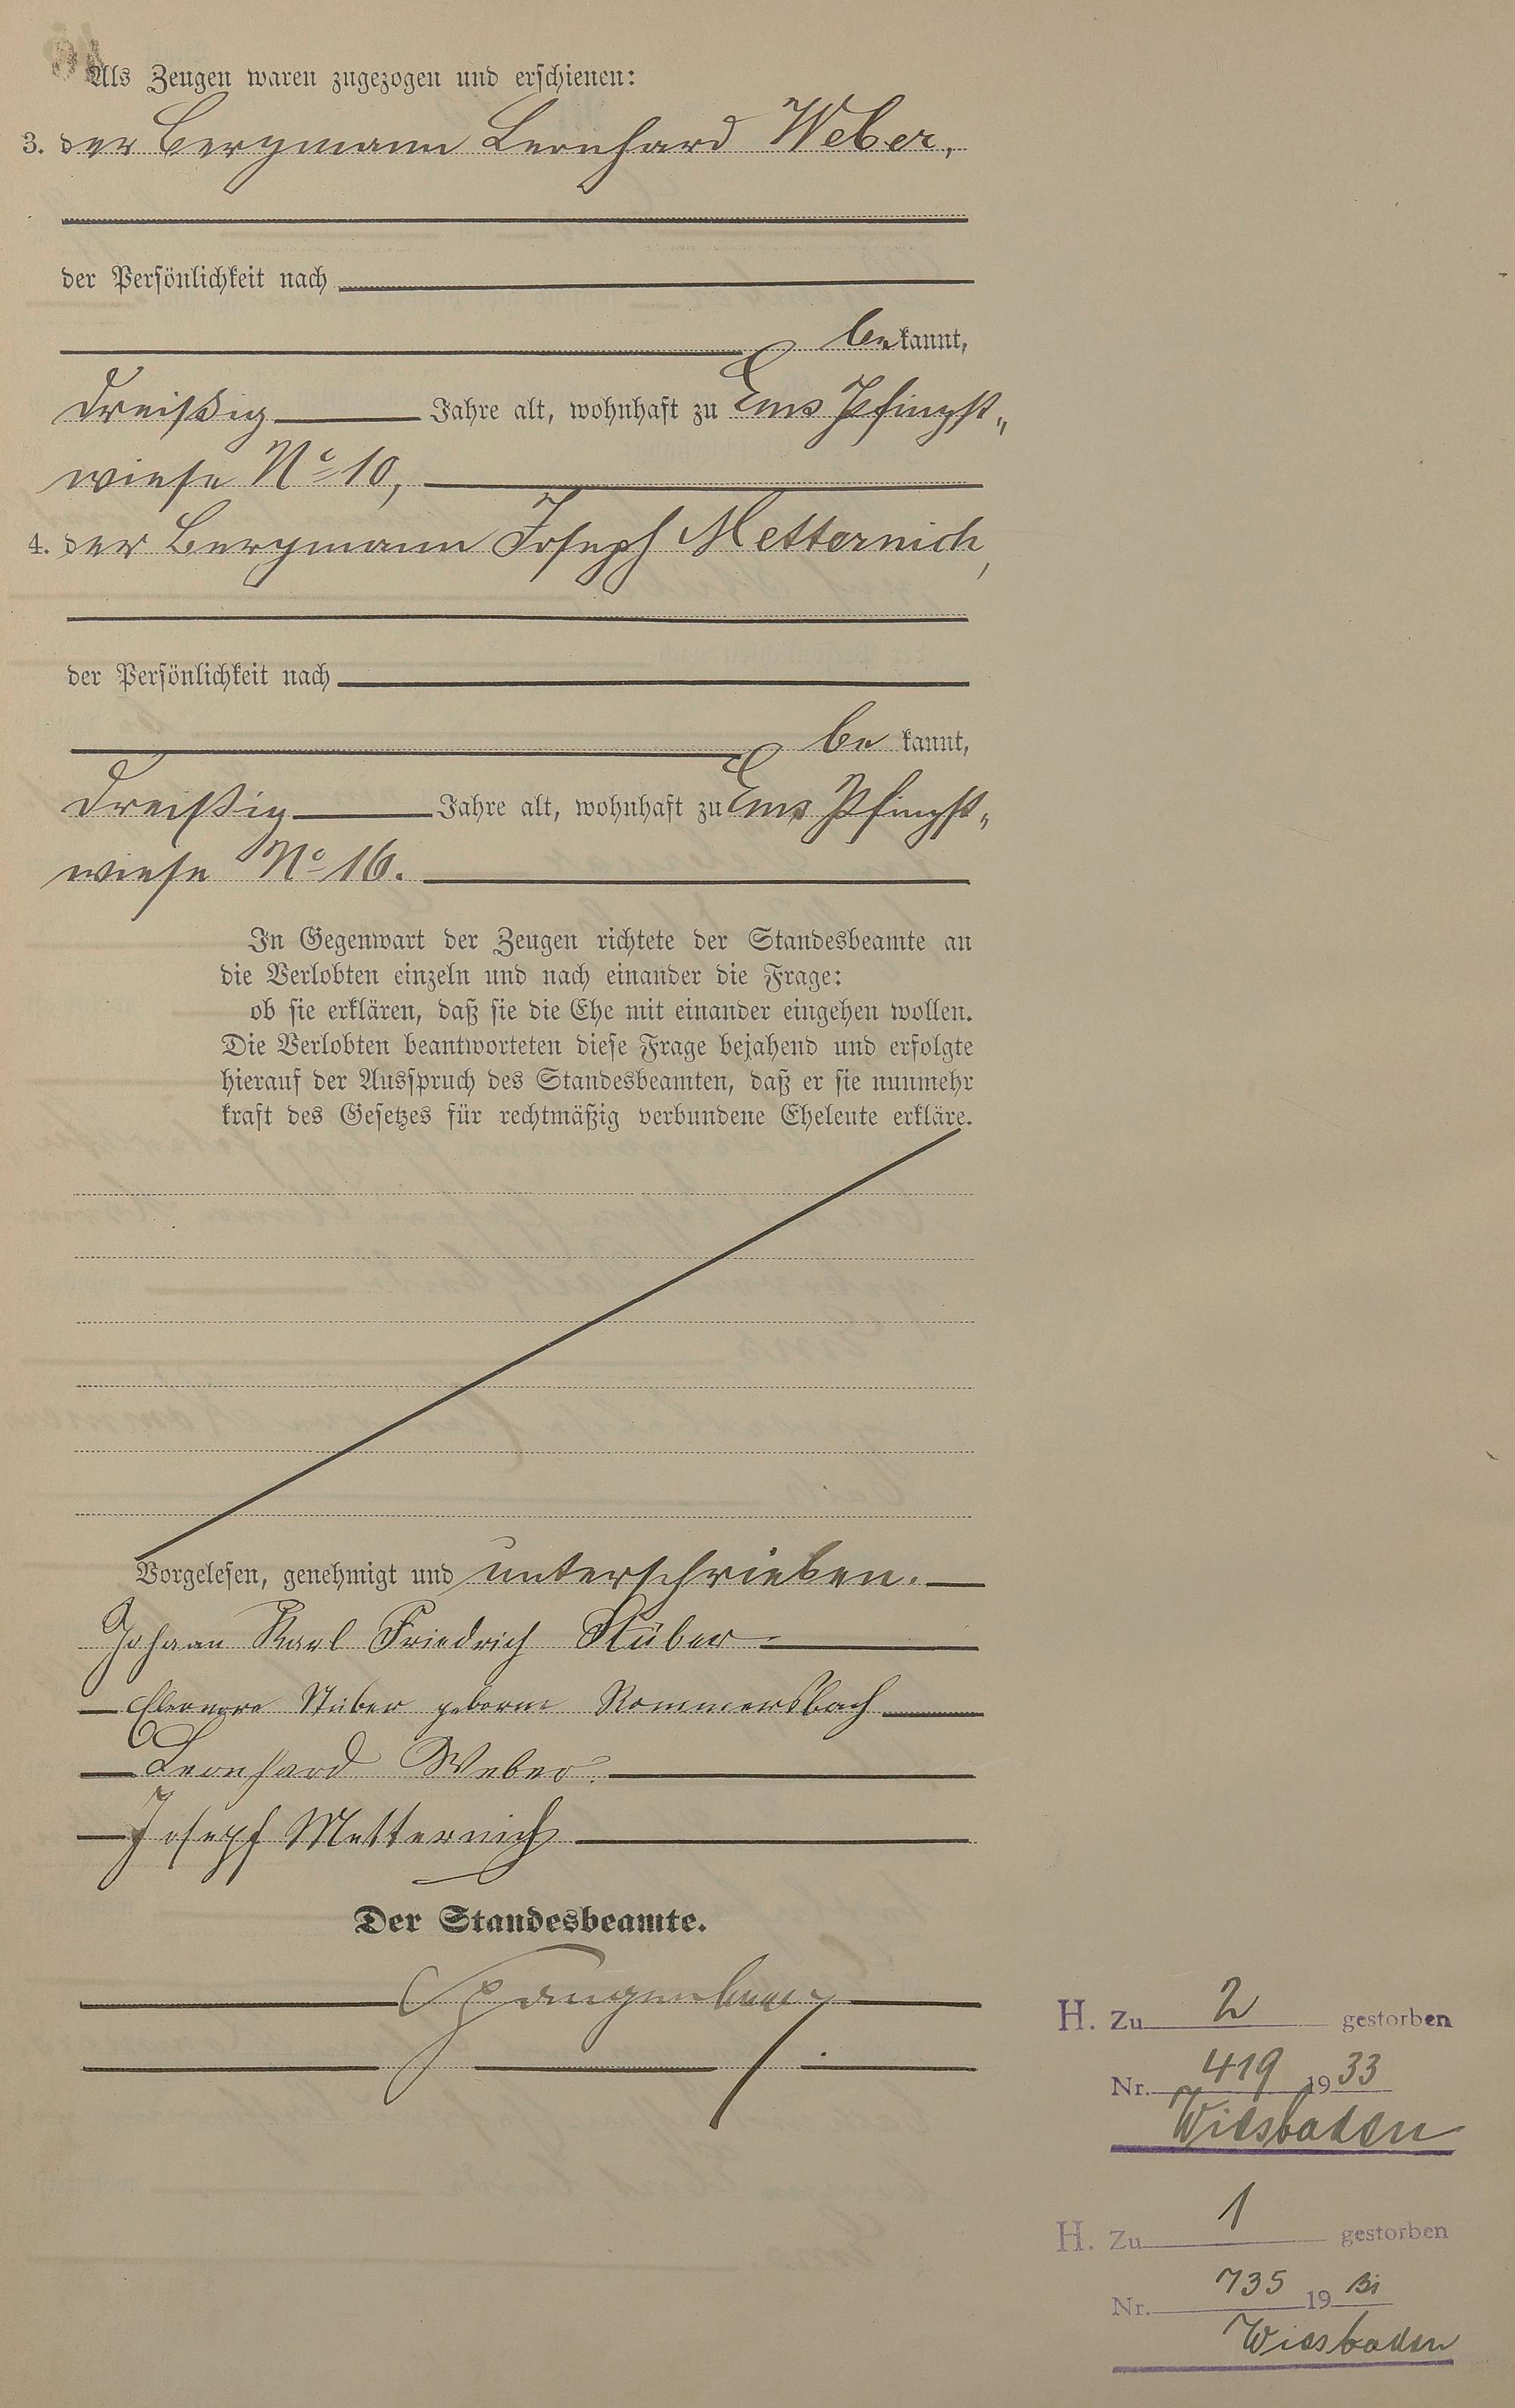 Als Zeugen waren zugezogen und erschienen:
3. der Bergmann Leonhard Weber,
der Persönlichkeit nach
bekannt,
dreißig Jahre alt, wohnhaft zu Ems Pfingst„
wiese No 10,
4. der Bergmann Joseph Metternich,
der Persönlichkeit nach
be kannt,
dreißig Jahre alt, wohnhaft zu Ems Pfingst„
wiese No 16.
In Gegenwart der Zeugen richtete der Standesbeamte an
die Verlobten einzeln und nach einander die Frage:
ob sie erklären, daß sie die Ehe mit einander eingehen wollen.
Die Verlobten beantworteten diese Frage bejahend und erfolgte
hierauf der Ausspruch des Standesbeamten, daß er sie nunmehr
kraft des Gesetzes für rechtmäßig verbundene Eheleute erkläre.
Vorgelesen, genehmigt und unterschrieben.
Johann Karl Friedrich Stüber
Eleonore Stüber geborne Rommersbach
Leonhard Weber.
Joseph Metternich
Der Standesbeamte.
Spangenberg
H. Zu 2 gestorben
Nr. 419 1933
Wiesbaden
H. Zu 1 gestorben
Nr. 735 19
Wiesbaden